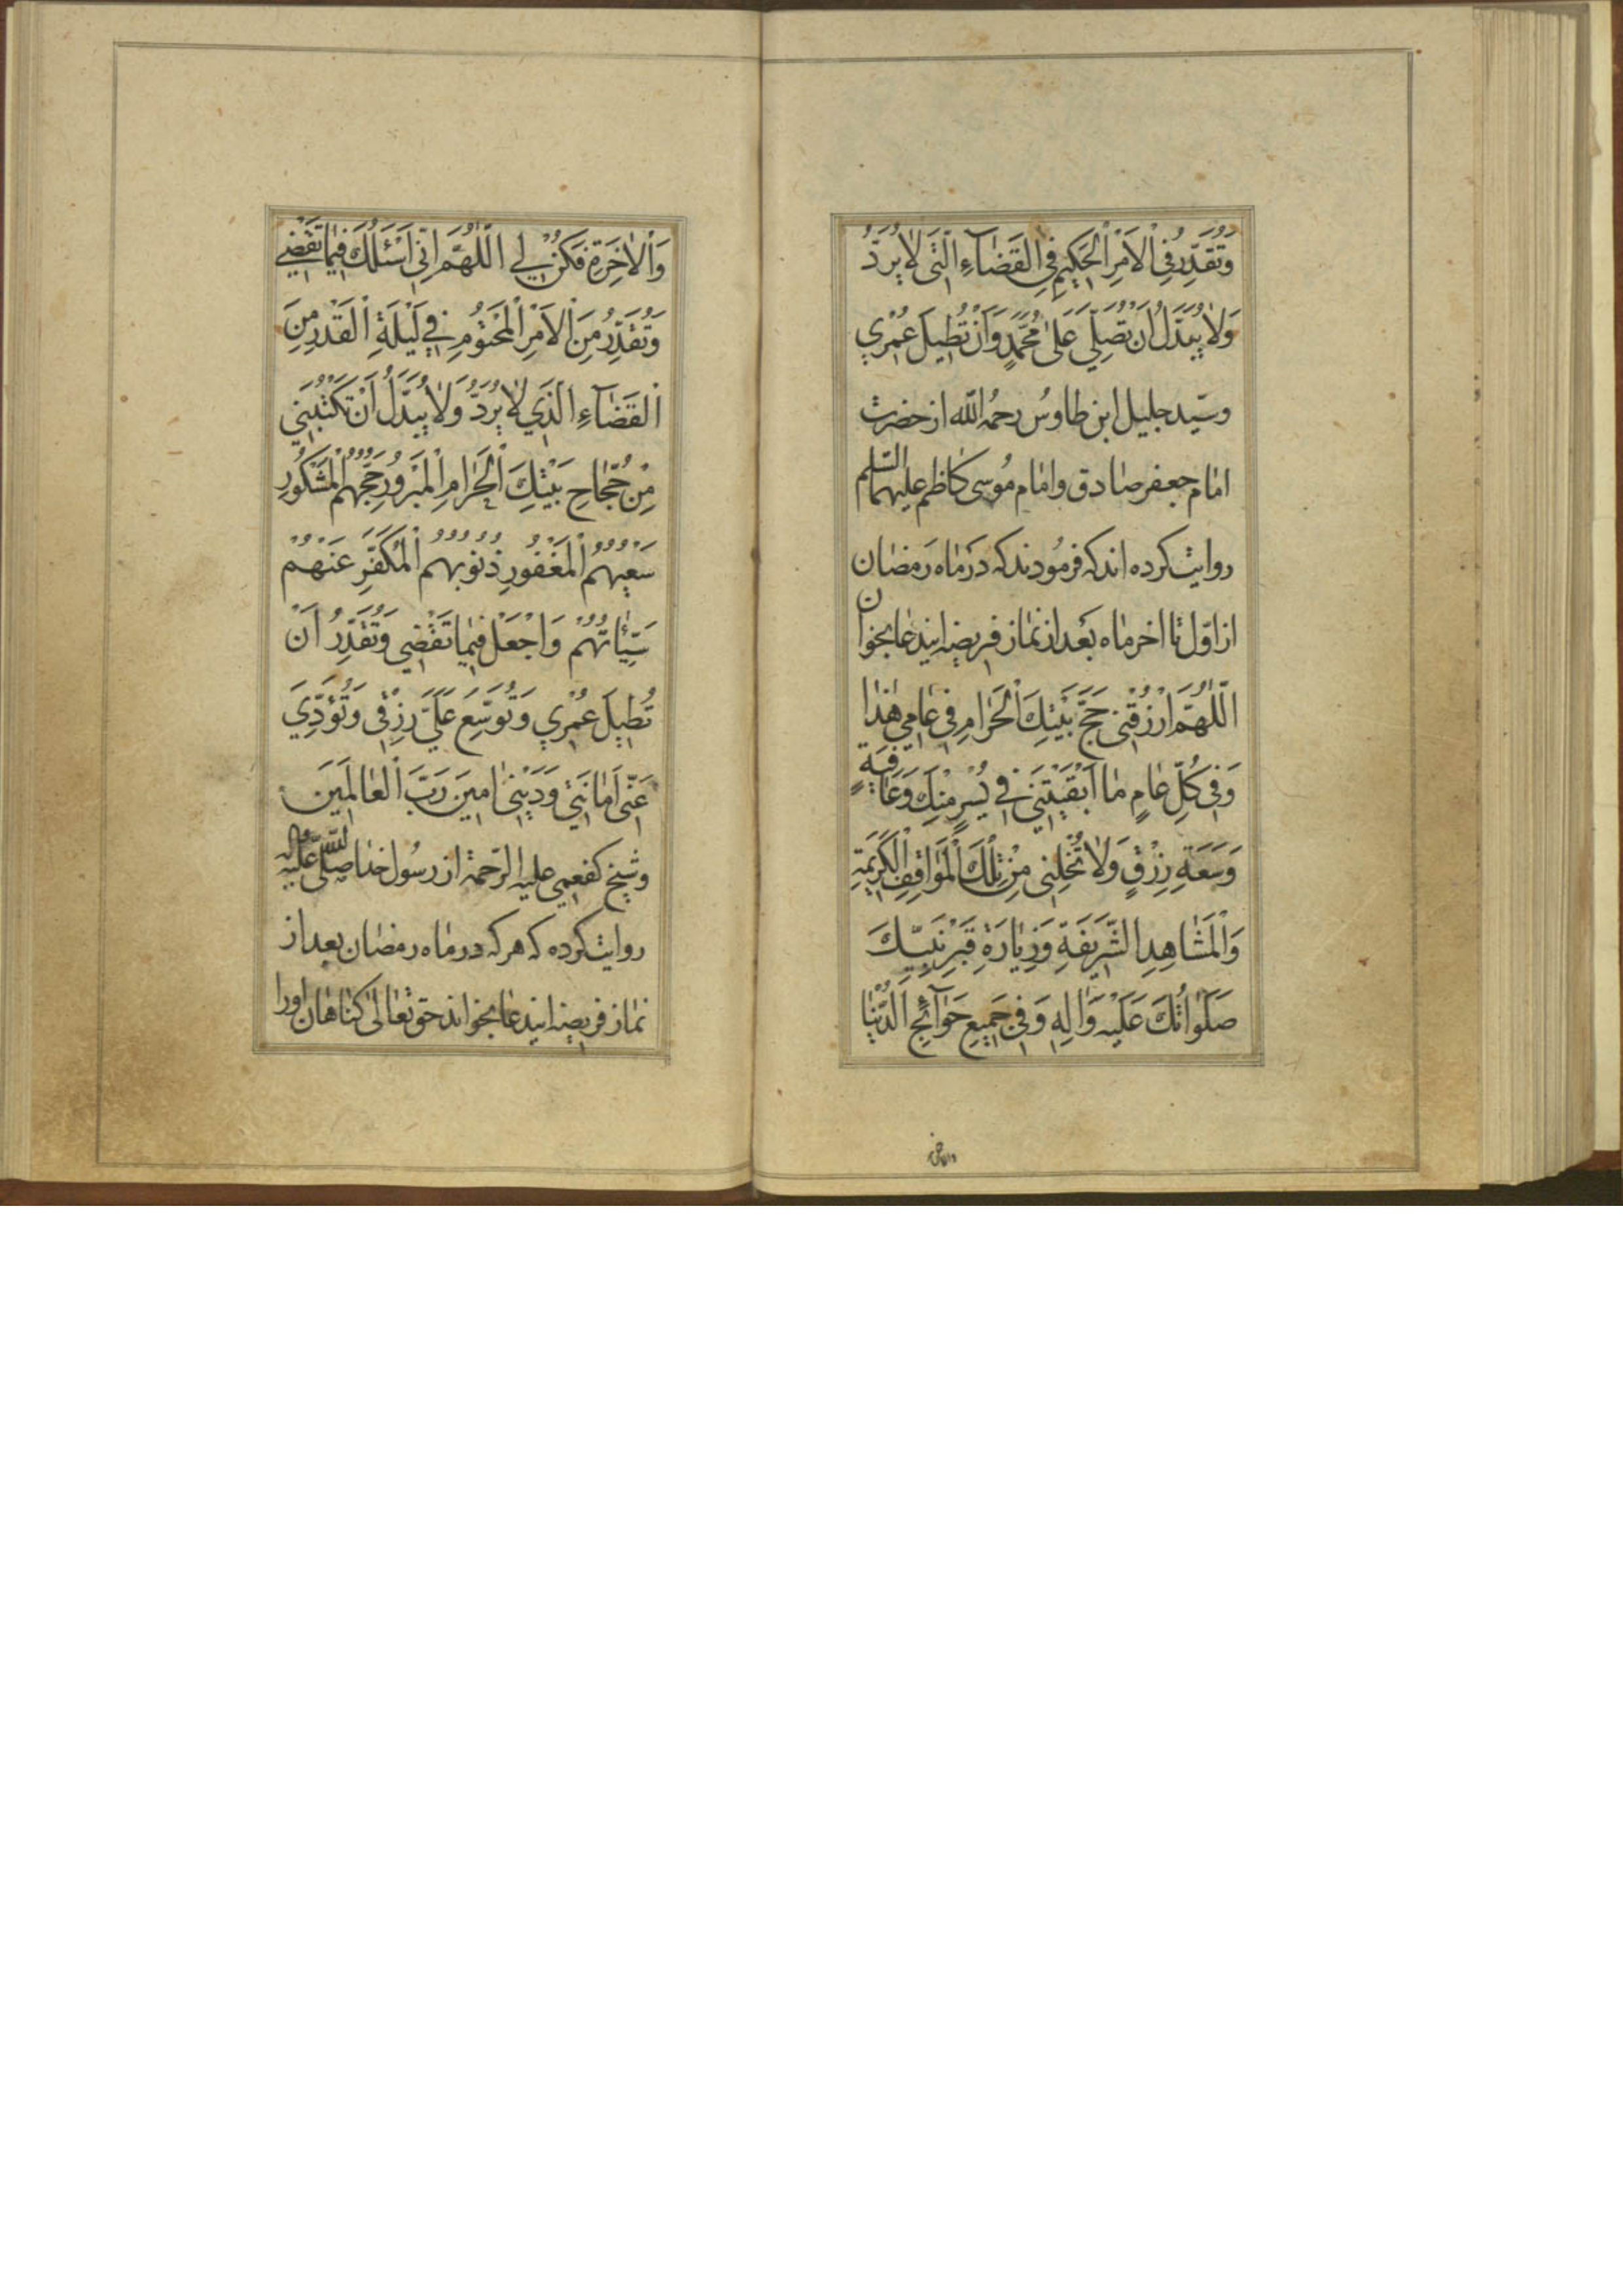 وَتُقَدِّرُ فِی الْاَمْرِ الْحَكِیمِ فِی الْقَضَآءِ الَّتِی لَا یُرَدُّ
وَلَا یُبَدَّلُ اَنْ تُصَلِّیَ عَلٰی مُحَمَّدٍ وَاَنْ تُطِیلَ عُمْرِی
وسیّد جلیل ابن طاوُس رحمُه اللّه از حضرت
امام جعفر صادق وامام مُوسی کاظم علیهما السّلم
روایت کرده اند که فرمُودند که دَر ماه رَمضان
از اوّل تا اخر ماه بَعد از نماز فریضه ایندعا بخوان
اَللّٰهُمَّ ارْزُقْنِی حَجَّ بَیْتِكَ الْحَرَامِ فِی عَامِی هٰذَا
وَفِی كُلِّ عَامٍ مَا اَبْقَیْتَنِی فِی یُسْرٍ مِنْكَ وَعَافِیَةٍ
وَسَعَةِ رِزْقٍ وَلَا تُخْلِنِی مِنْ تِلْكَ الْمَوَاقِفِ الْكَرِیمَةِ
وَالْمَشَاهِدِ الشَّرِیفَةِ وَزِیَارَةِ قَبْرِ نَبِیِّكَ
صَلَوَاتُكَ عَلَیْهِ وَاٰلِهِ وَفِی جَمِیعِ حَوَآئِجِ الدُّنْیَا
وَالْاٰخِرَةِ فَكُنْ لِی اَللّٰهُمَّ اِنِّی اَسْئَلُكَ فِیمَا تَقْضِی
وَتُقَدِّرُ مِنَ الْاَمْرِ الْمَحْتُومِ فِی لَیْلَةِ الْقَدْرِ مِنَ
الْقَضَآءِ الَّذِی لَا یُرَدُّ وَلَا یُبَدَّلُ اَنْ تَكْتُبَنِی
مِنْ حُجَّاجِ بَیْتِكَ الْحَرَامِ الْمَبْرُورِ حَجُّهُمُ الْمَشْكُورِ
سَعْیُهُمُ الْمَغْفُورِ ذُنُوبُهُمُ الْمُكَفَّرِ عَنْهُمْ
سَیِّئَاتُهُمْ وَاجْعَلْ فِیمَا تَقْضِی وَتُقَدِّرُ اَنْ
تُطِیلَ عُمْرِی وَتُوَسِّعَ عَلَیَّ رِزْقِی وَتُؤَدِّیَ
عَنِّی اَمَانَتِی وَدَیْنِی اٰمِینَ رَبَّ الْعَالَمِینَ
وشیخ کفعمی علیه الرّحمة از رسُول خدا صلّی اللّه علیه واله
روایت کرده که هر که در ماه رمضان بعد از
نماز فریضه ایندعا بخواند حق تعالی کناهان اورا